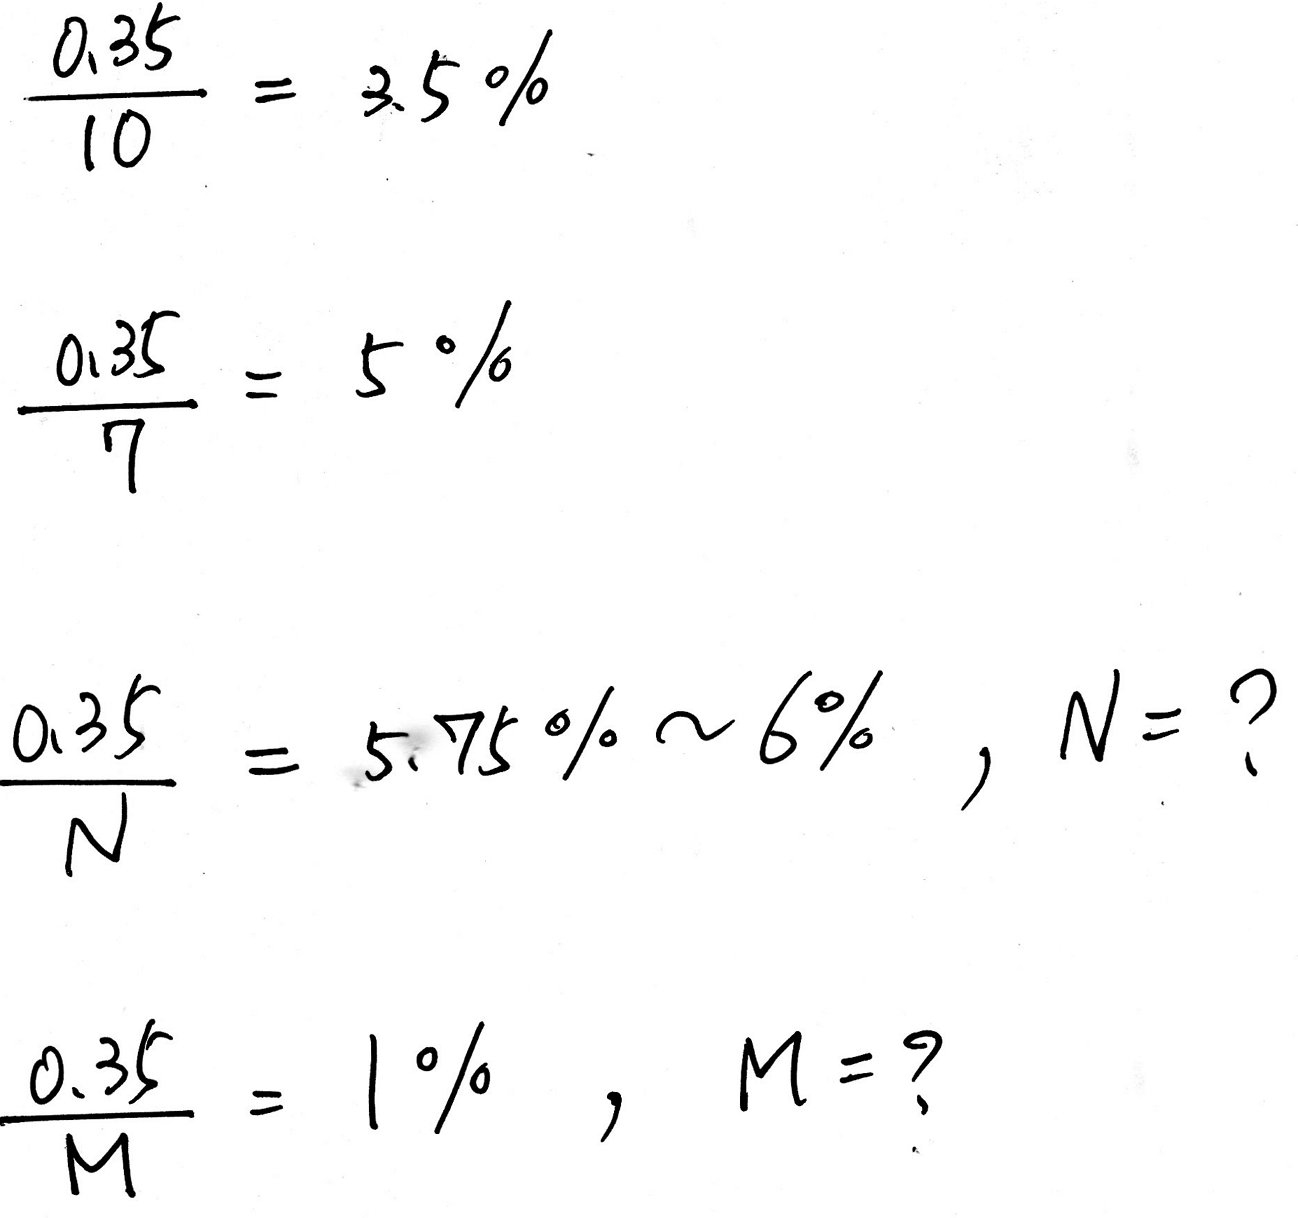 0.35/10 = 3.5%
0.35/7 = 5%
0.35/N = 5.75% ~ 6%, N = ?
0.35/M = 1%, M = ?